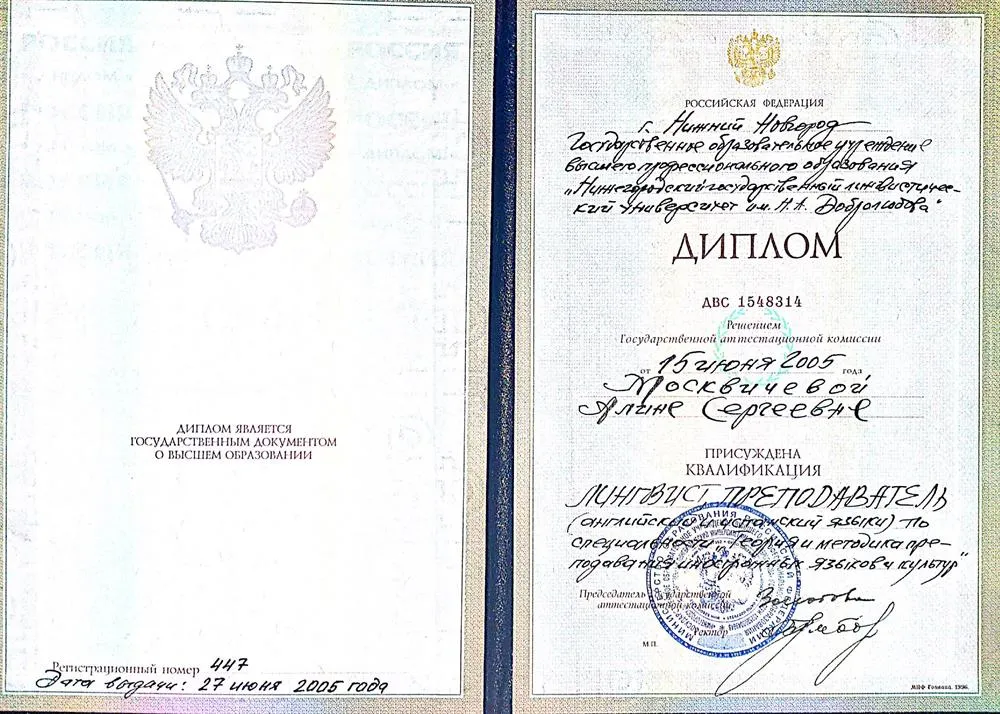 ДИПЛОМ ЯВЛЯЕТСЯ
ГОСУДАРСТВЕННЫМ ДОКУМЕНТОМ
О ВЫСШЕМ ОБРАЗОВАНИИ
Регистрационный номер 447
Дата выдачи: 27 июня 2005 года
РОССИЙСКАЯ ФЕДЕРАЦИЯ
г. Нижний Новгород
Государственное образовательное учреждение
высшего профессионального образования
„Нижегородский государственный лингвистиче-
ский университет им. Н.А. Добролюбова"
ДИПЛОМ
ДВС 1548314
Решением
Государственной аттестационной комиссии
от 15 июня 2005 года
Москвичевой
Алине Сергеевне
ПРИСУЖДЕНА
КВАЛИФИКАЦИЯ
ЛИНГВИСТ, ПРЕПОДАВАТЕЛЬ
(английский и испанский языки) по
специальности „Теория и методика пре-
подавания иностранных языков и культур"
Председатель Государственной
аттестационной комиссии
Ректор
М.П.
МПФ Гознака. 1996.